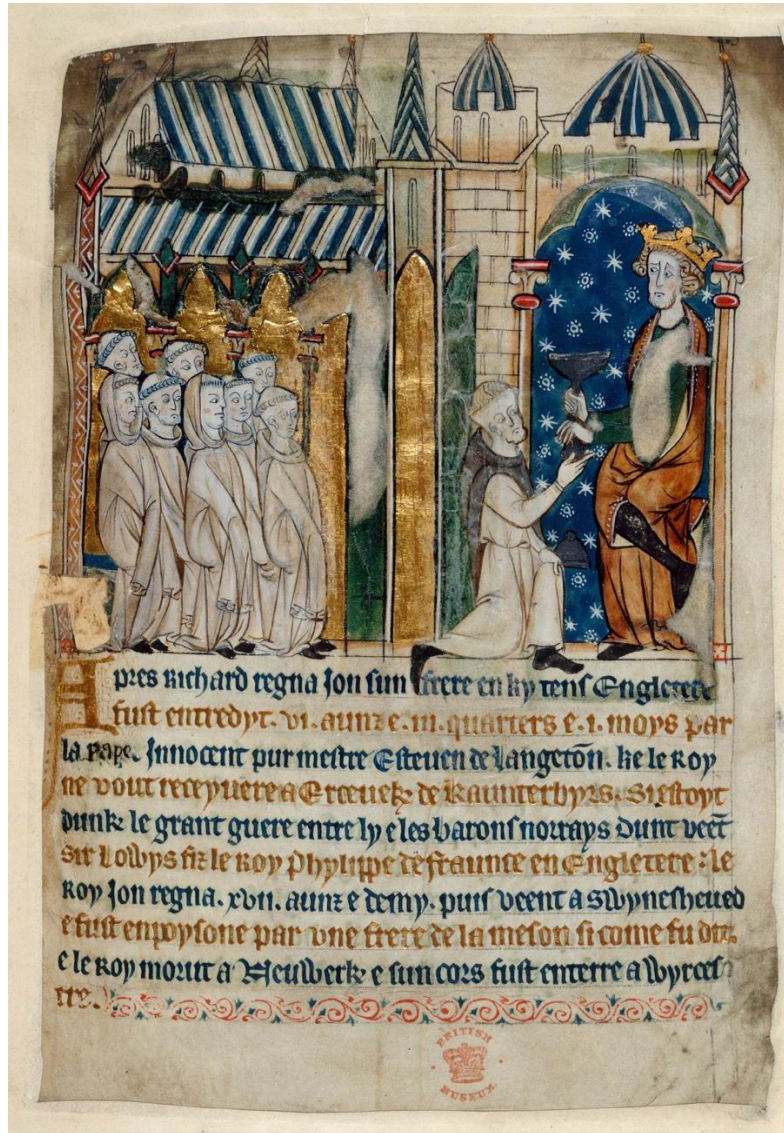 Apres Richard regna Jon sun frere en ky tens Engletere
fust entredyt. vi. aunz e. iii. quarters e. i. moys par
la pape. Innocent pur mestre Esteuen de Langetōn. ke le Roy
ne vout receyuere a Erceuekꝭ de Kaunterbyrs. Si estoyt
dunk le grant guere entre ly e les barons norrays dunt veēt
sir Lowys fiz le Roy Phylippe de fraunce en Engletere: le
Roy Jon regna. xvii. aunz e demy. puis veent a Swynesheued
e fust enpoysone par vne frere de la meson si come fu dit.
e le Roy morut a Neuwerk e sun cors fust enterre a Wyrces
tre.
BRITISH
MUSEUM